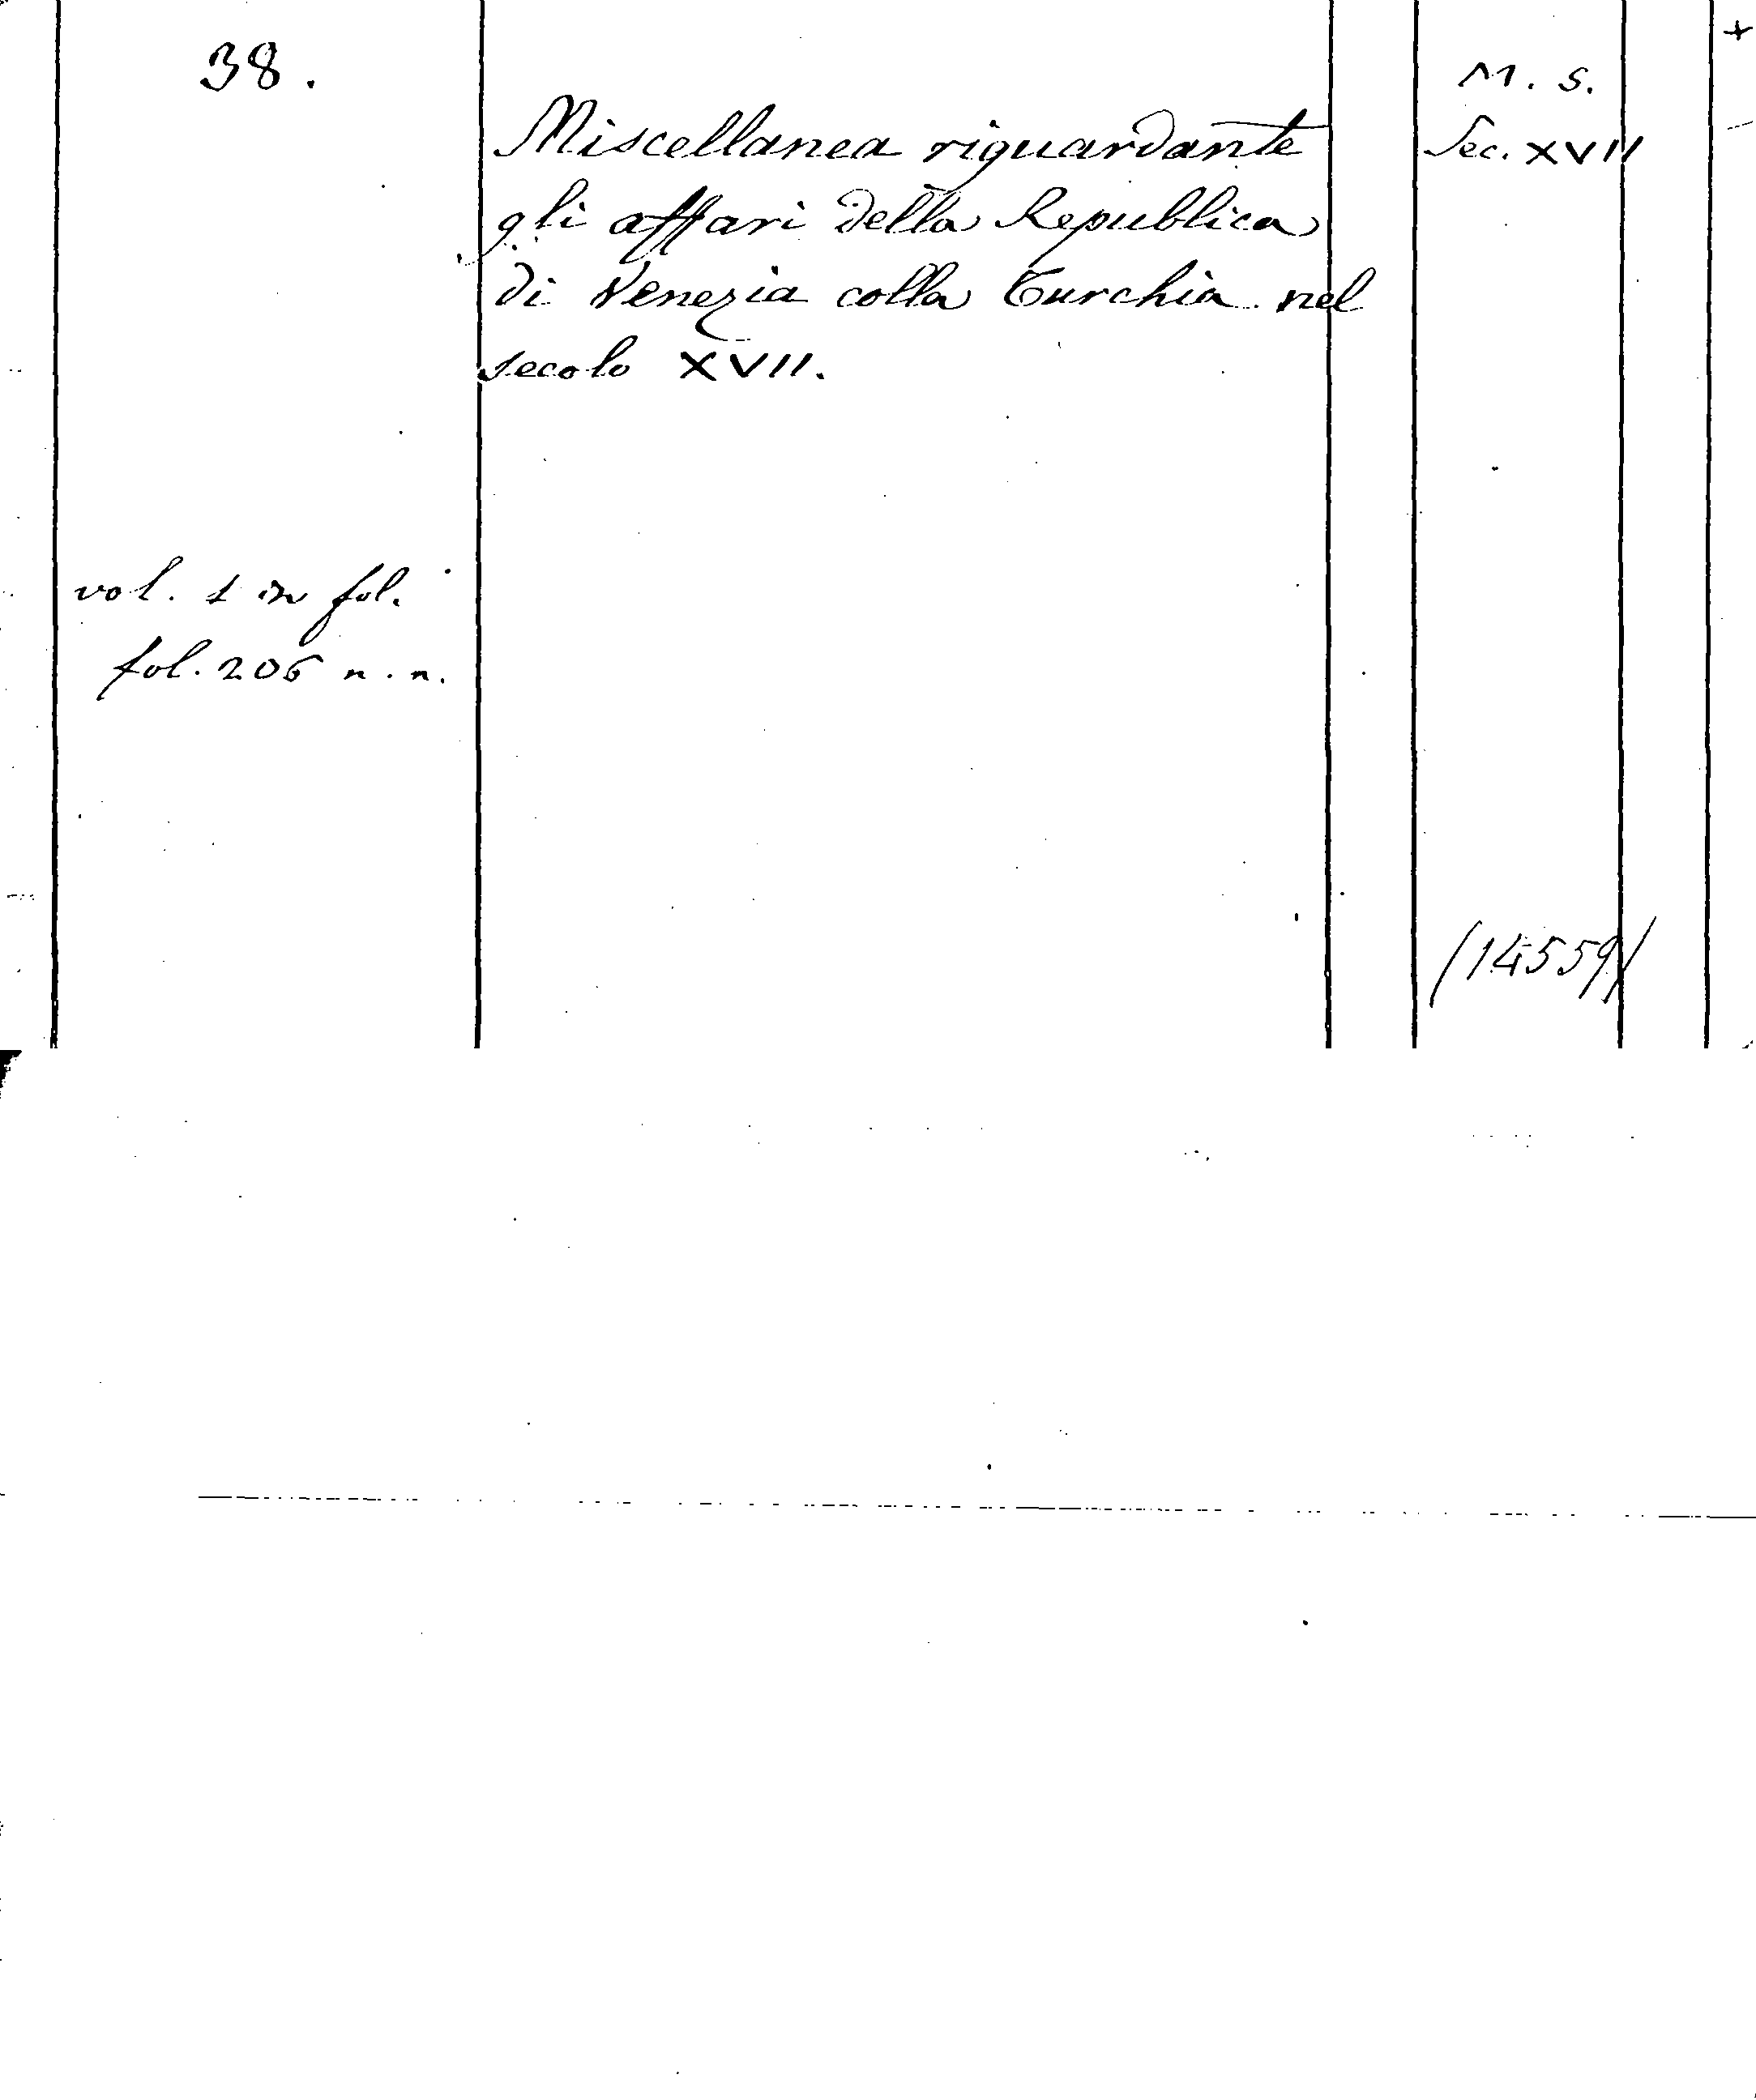 38.
Miscellanea riguardante
gli affari della Republica
di Venezia colla Turchia nel
secolo XVII.
vol. 1 in fol.
fol. 206 n. n.
M. S.
Sec. XVII
(14559)